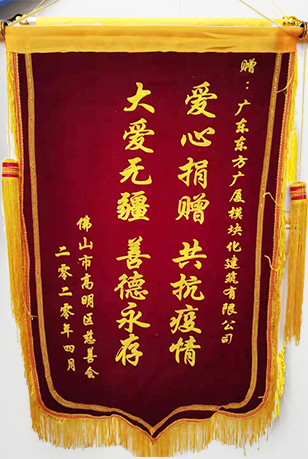 赠：广东东方广厦模块化建筑有限公司
爱心捐赠 共抗疫情
大爱无疆 善德永存
佛山市高明区慈善会
二零二零年四月